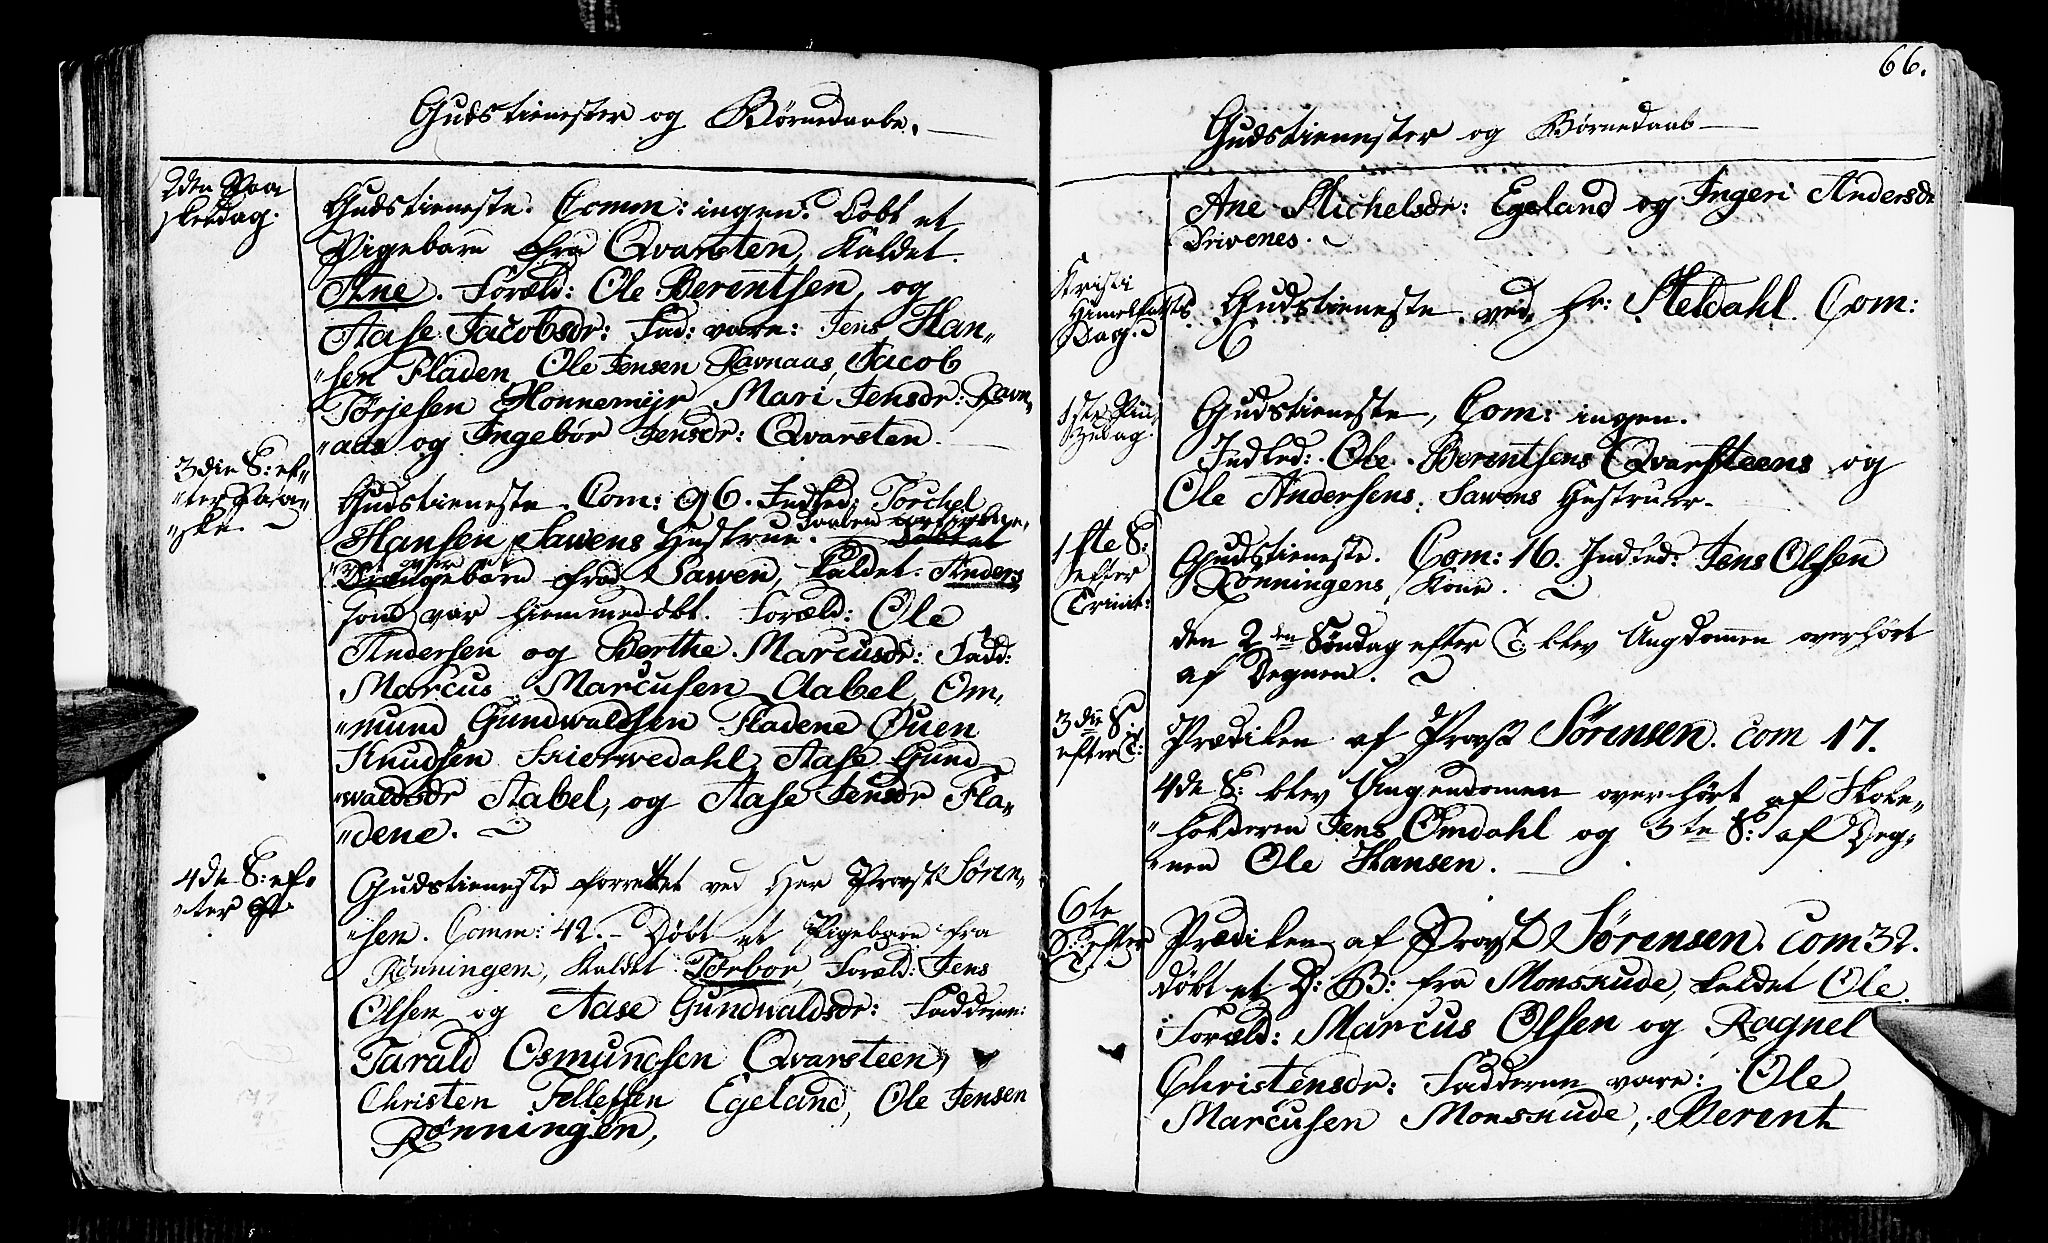 Gudstienester og Børnedaabe.
2den Paa
skedag.
Gudstieneste. Comm: ingen. Døbt et
Pigebarn fra Qvarsten, kaldet
Ane. Foræld: Ole Berentsen, og
Aase Jacobsdr: Fad: vare: Jens Han„
„sen Fladen, Ole Jensen Ravnaas, Jacob
Tørjesen Honnemyr, Mari Jensdr: Ravn„
„aas og Ingebor Jensdr: Qvarsten.
3die S: ef„
„ter Paa„
„ske.
Gudstieneste. Com: 96. Indled: Torchel
Hansen Sawens Hustrue.
Drengebarn fra Sawen, kaldet Anders
som var hiemmedøbt. Foræld: Ole
Andersen og Berthe Marcusdr: Fadd:
Marcus Marcusen Aabel, Om„
„mund Gundwaldsen Fladene Ouen
Knudsen Frierwedahl, Aase Gund„
„waldsdr Aabel, og Aase Jensdr Fla„
„dene.
4de S: ef„
„ter P:
Gudstieneste forrettet ved Her Provst Søren„
„sen. Comm: 42. Døbt et Pigebarn fra
Rønningen, kaldet Tørbor, Foræld: Jens
Olsen og Aase Gundwaldsdr: Fadderne:
Tarald Osmundsen Qvarsteen,
Christen Tellefsen Egeland, Ole Jensen
Rønningen,
66.
Gudstienester og Børnedaab
Ane Michelsdr: Egeland og Ingeri Andersdr
Drivenes.
Kristi
Himelfarts
Dag.
Gudstieneste ved Hr: Meldahl. Com:
6
1ste Pin„
„tzedag.
Gudstieneste, Com: ingen.
Indled: Ole Berentsens Qvarsteens og
Ole Andersens Sawens Hustruer.
1ste S:
efter
Trinit:
Gudstieneste. Com: 16. Indled: Jens Olsen
Rønningens Kone.
den 2den Søndag efter T: blev Ungdommen overhørt
af Degnen.
3die S.
efter T:
Prædiken af Provst Sørensen. Com 17.
4de S: blev Ungendomen overhørt af Skole„
„holderen Jens Omdahl og 5te S: af Deg„
„nen Ole Hansen.
6te
S: efter
T.
Prædiken af Provst Sørensen. Com 32.
Døbt et D: B: fra Monskude, kaldet Ole.
Foræld: Marcus Olsen og Ragnel
Christensdr: Fadderne vare: Ole
Marcusen Monskude, Berent